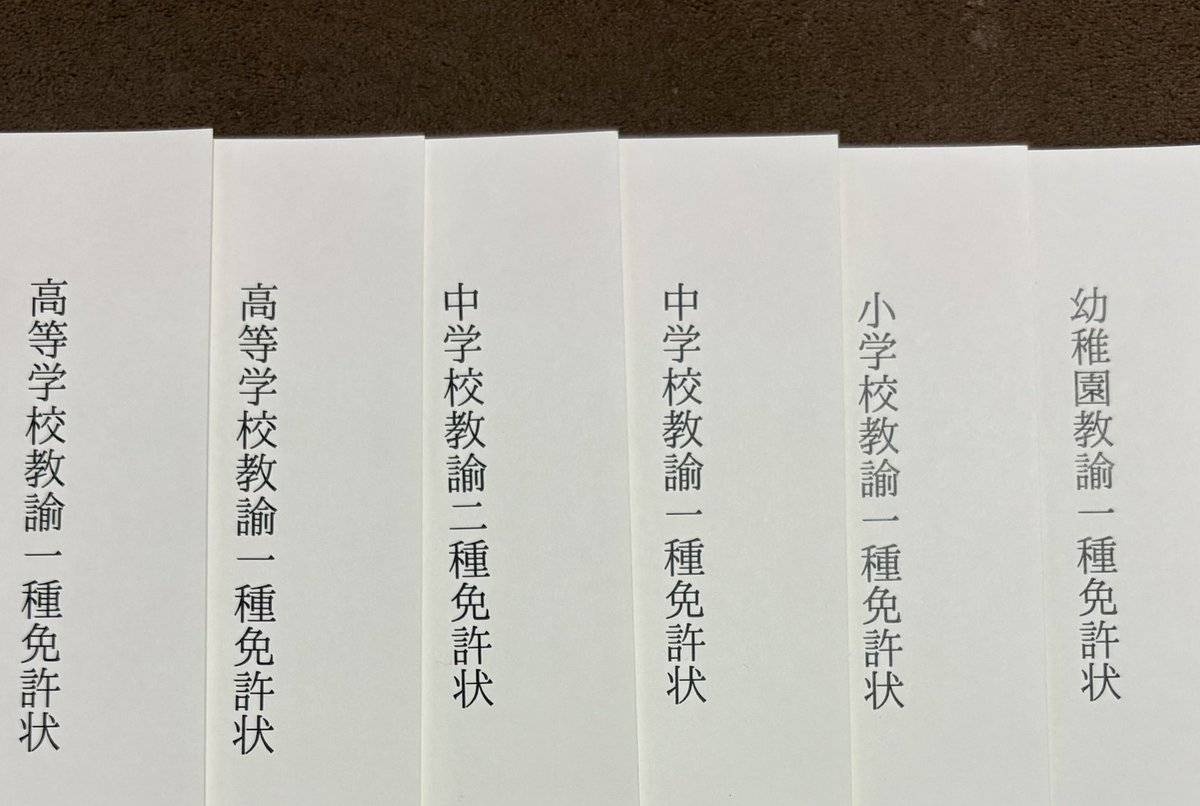 幼稚園教諭一種免許状
小学校教諭一種免許状
中学校教諭一種免許状
中学校教諭二種免許状
高等学校教諭一種免許状
高等学校教諭一種免許状